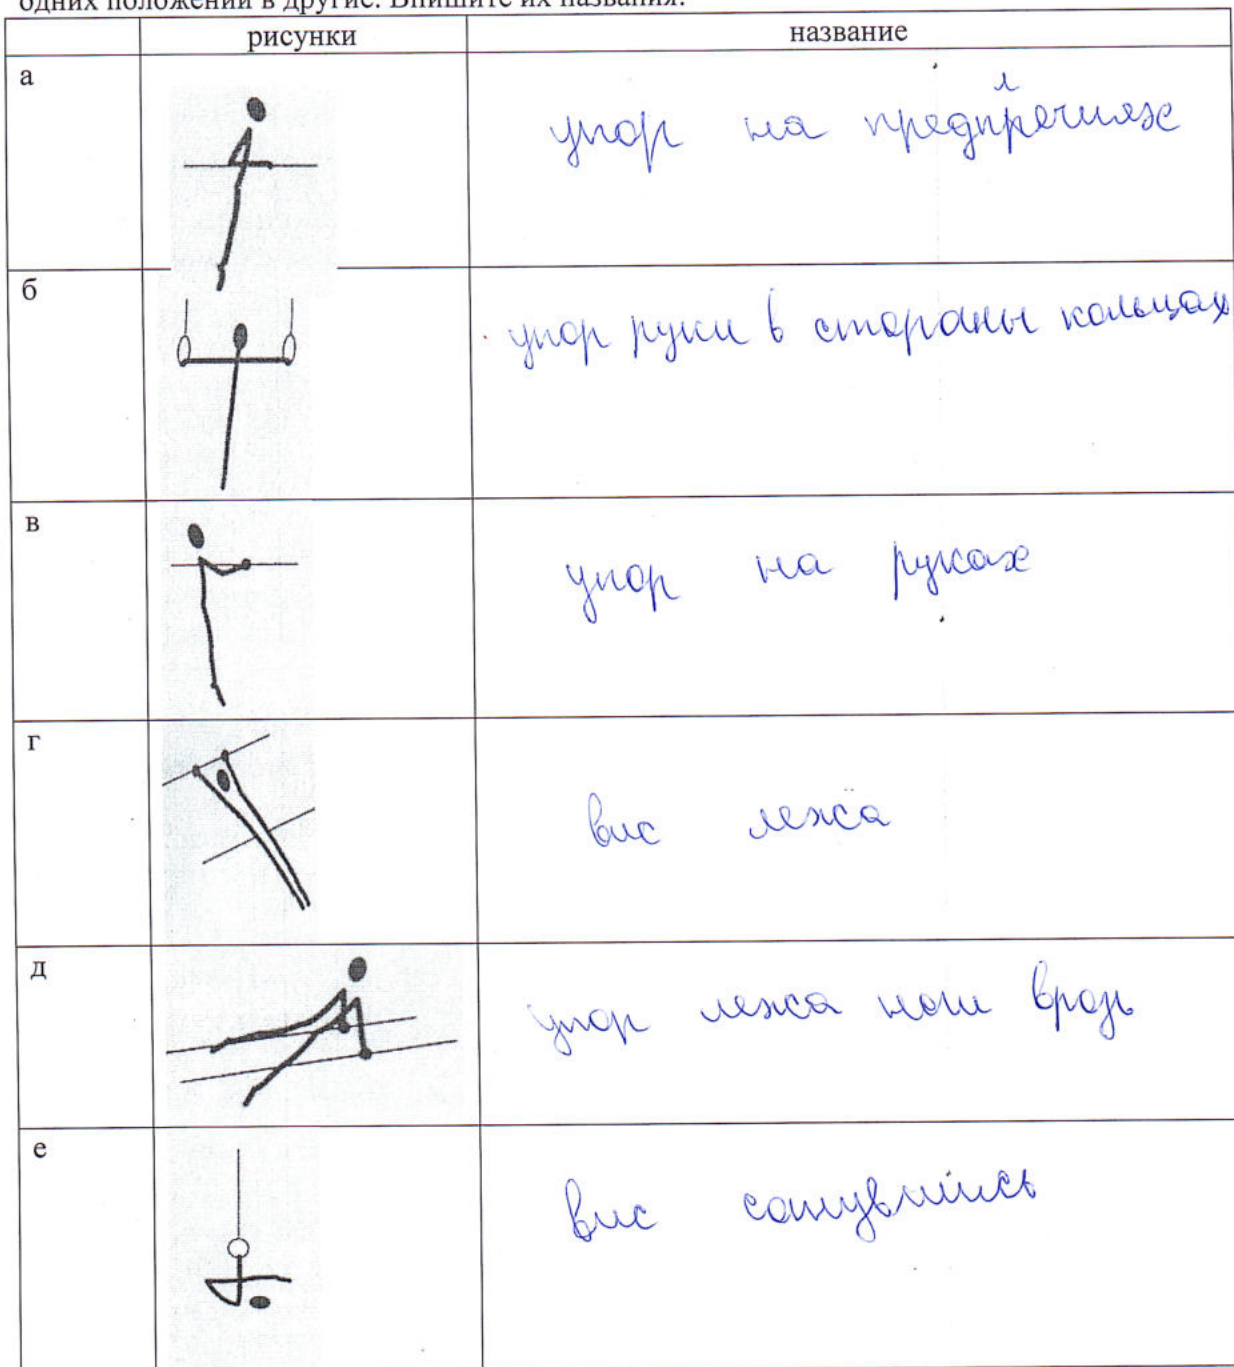 одних положений в другие. Впишите их названия.
рисунки название
а упор на предплречиях
б упор руки в стораны кольцах
в упор на руках
г вис лежа
д упор лежа ноги врозь
е вис согнувшись